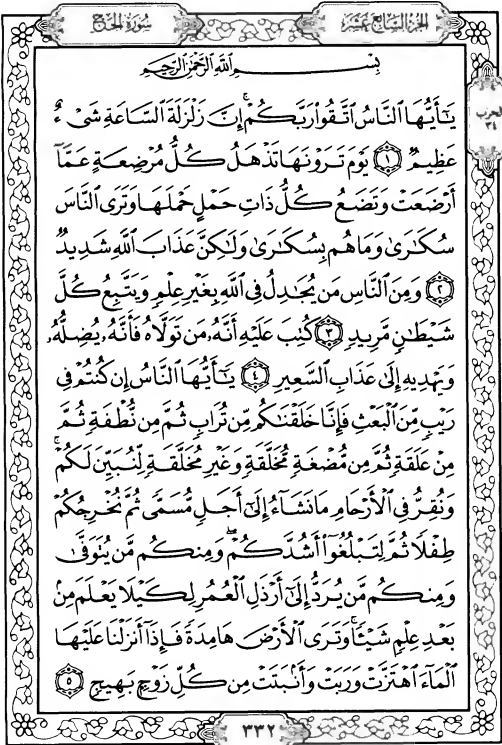 سُورَةُ الحَجِّ
الجُزْءُ السَّابِعَ عَشَرَ
بِسْمِ اللَّهِ الرَّحْمَٰنِ الرَّحِيمِ
يَـٰٓأَيُّهَا ٱلنَّاسُ ٱتَّقُوا۟ رَبَّكُمْ ۚ إِنَّ زَلْزَلَةَ ٱلسَّاعَةِ شَىْءٌ
عَظِيمٌ ١ يَوْمَ تَرَوْنَهَا تَذْهَلُ كُلُّ مُرْضِعَةٍ عَمَّآ
أَرْضَعَتْ وَتَضَعُ كُلُّ ذَاتِ حَمْلٍ حَمْلَهَا وَتَرَى ٱلنَّاسَ
سُكَـٰرَىٰ وَمَا هُم بِسُكَـٰرَىٰ وَلَـٰكِنَّ عَذَابَ ٱللَّهِ شَدِيدٌ
٢ وَمِنَ ٱلنَّاسِ مَن يُجَـٰدِلُ فِى ٱللَّهِ بِغَيْرِ عِلْمٍ وَيَتَّبِعُ كُلَّ
شَيْطَـٰنٍ مَّرِيدٍ ٣ كُتِبَ عَلَيْهِ أَنَّهُۥ مَن تَوَلَّاهُ فَأَنَّهُۥ يُضِلُّهُۥ
وَيَهْدِيهِ إِلَىٰ عَذَابِ ٱلسَّعِيرِ ٤ يَـٰٓأَيُّهَا ٱلنَّاسُ إِن كُنتُمْ فِى
رَيْبٍ مِّنَ ٱلْبَعْثِ فَإِنَّا خَلَقْنَـٰكُم مِّن تُرَابٍ ثُمَّ مِن نُّطْفَةٍ ثُمَّ
مِنْ عَلَقَةٍ ثُمَّ مِن مُّضْغَةٍ مُّخَلَّقَةٍ وَغَيْرِ مُخَلَّقَةٍ لِّنُبَيِّنَ لَكُمْ ۚ
وَنُقِرُّ فِى ٱلْأَرْحَامِ مَا نَشَآءُ إِلَىٰٓ أَجَلٍ مُّسَمًّى ثُمَّ نُخْرِجُكُمْ
طِفْلًا ثُمَّ لِتَبْلُغُوٓا۟ أَشُدَّكُمْ ۖ وَمِنكُم مَّن يُتَوَفَّىٰ
وَمِنكُم مَّن يُرَدُّ إِلَىٰٓ أَرْذَلِ ٱلْعُمُرِ لِكَيْلَا يَعْلَمَ مِنۢ
بَعْدِ عِلْمٍ شَيْـًٔا ۚ وَتَرَى ٱلْأَرْضَ هَامِدَةً فَإِذَآ أَنزَلْنَا عَلَيْهَا
ٱلْمَآءَ ٱهْتَزَّتْ وَرَبَتْ وَأَنۢبَتَتْ مِن كُلِّ زَوْجٍۭ بَهِيجٍ ٥
الحزب
٣٤
٣٣٢